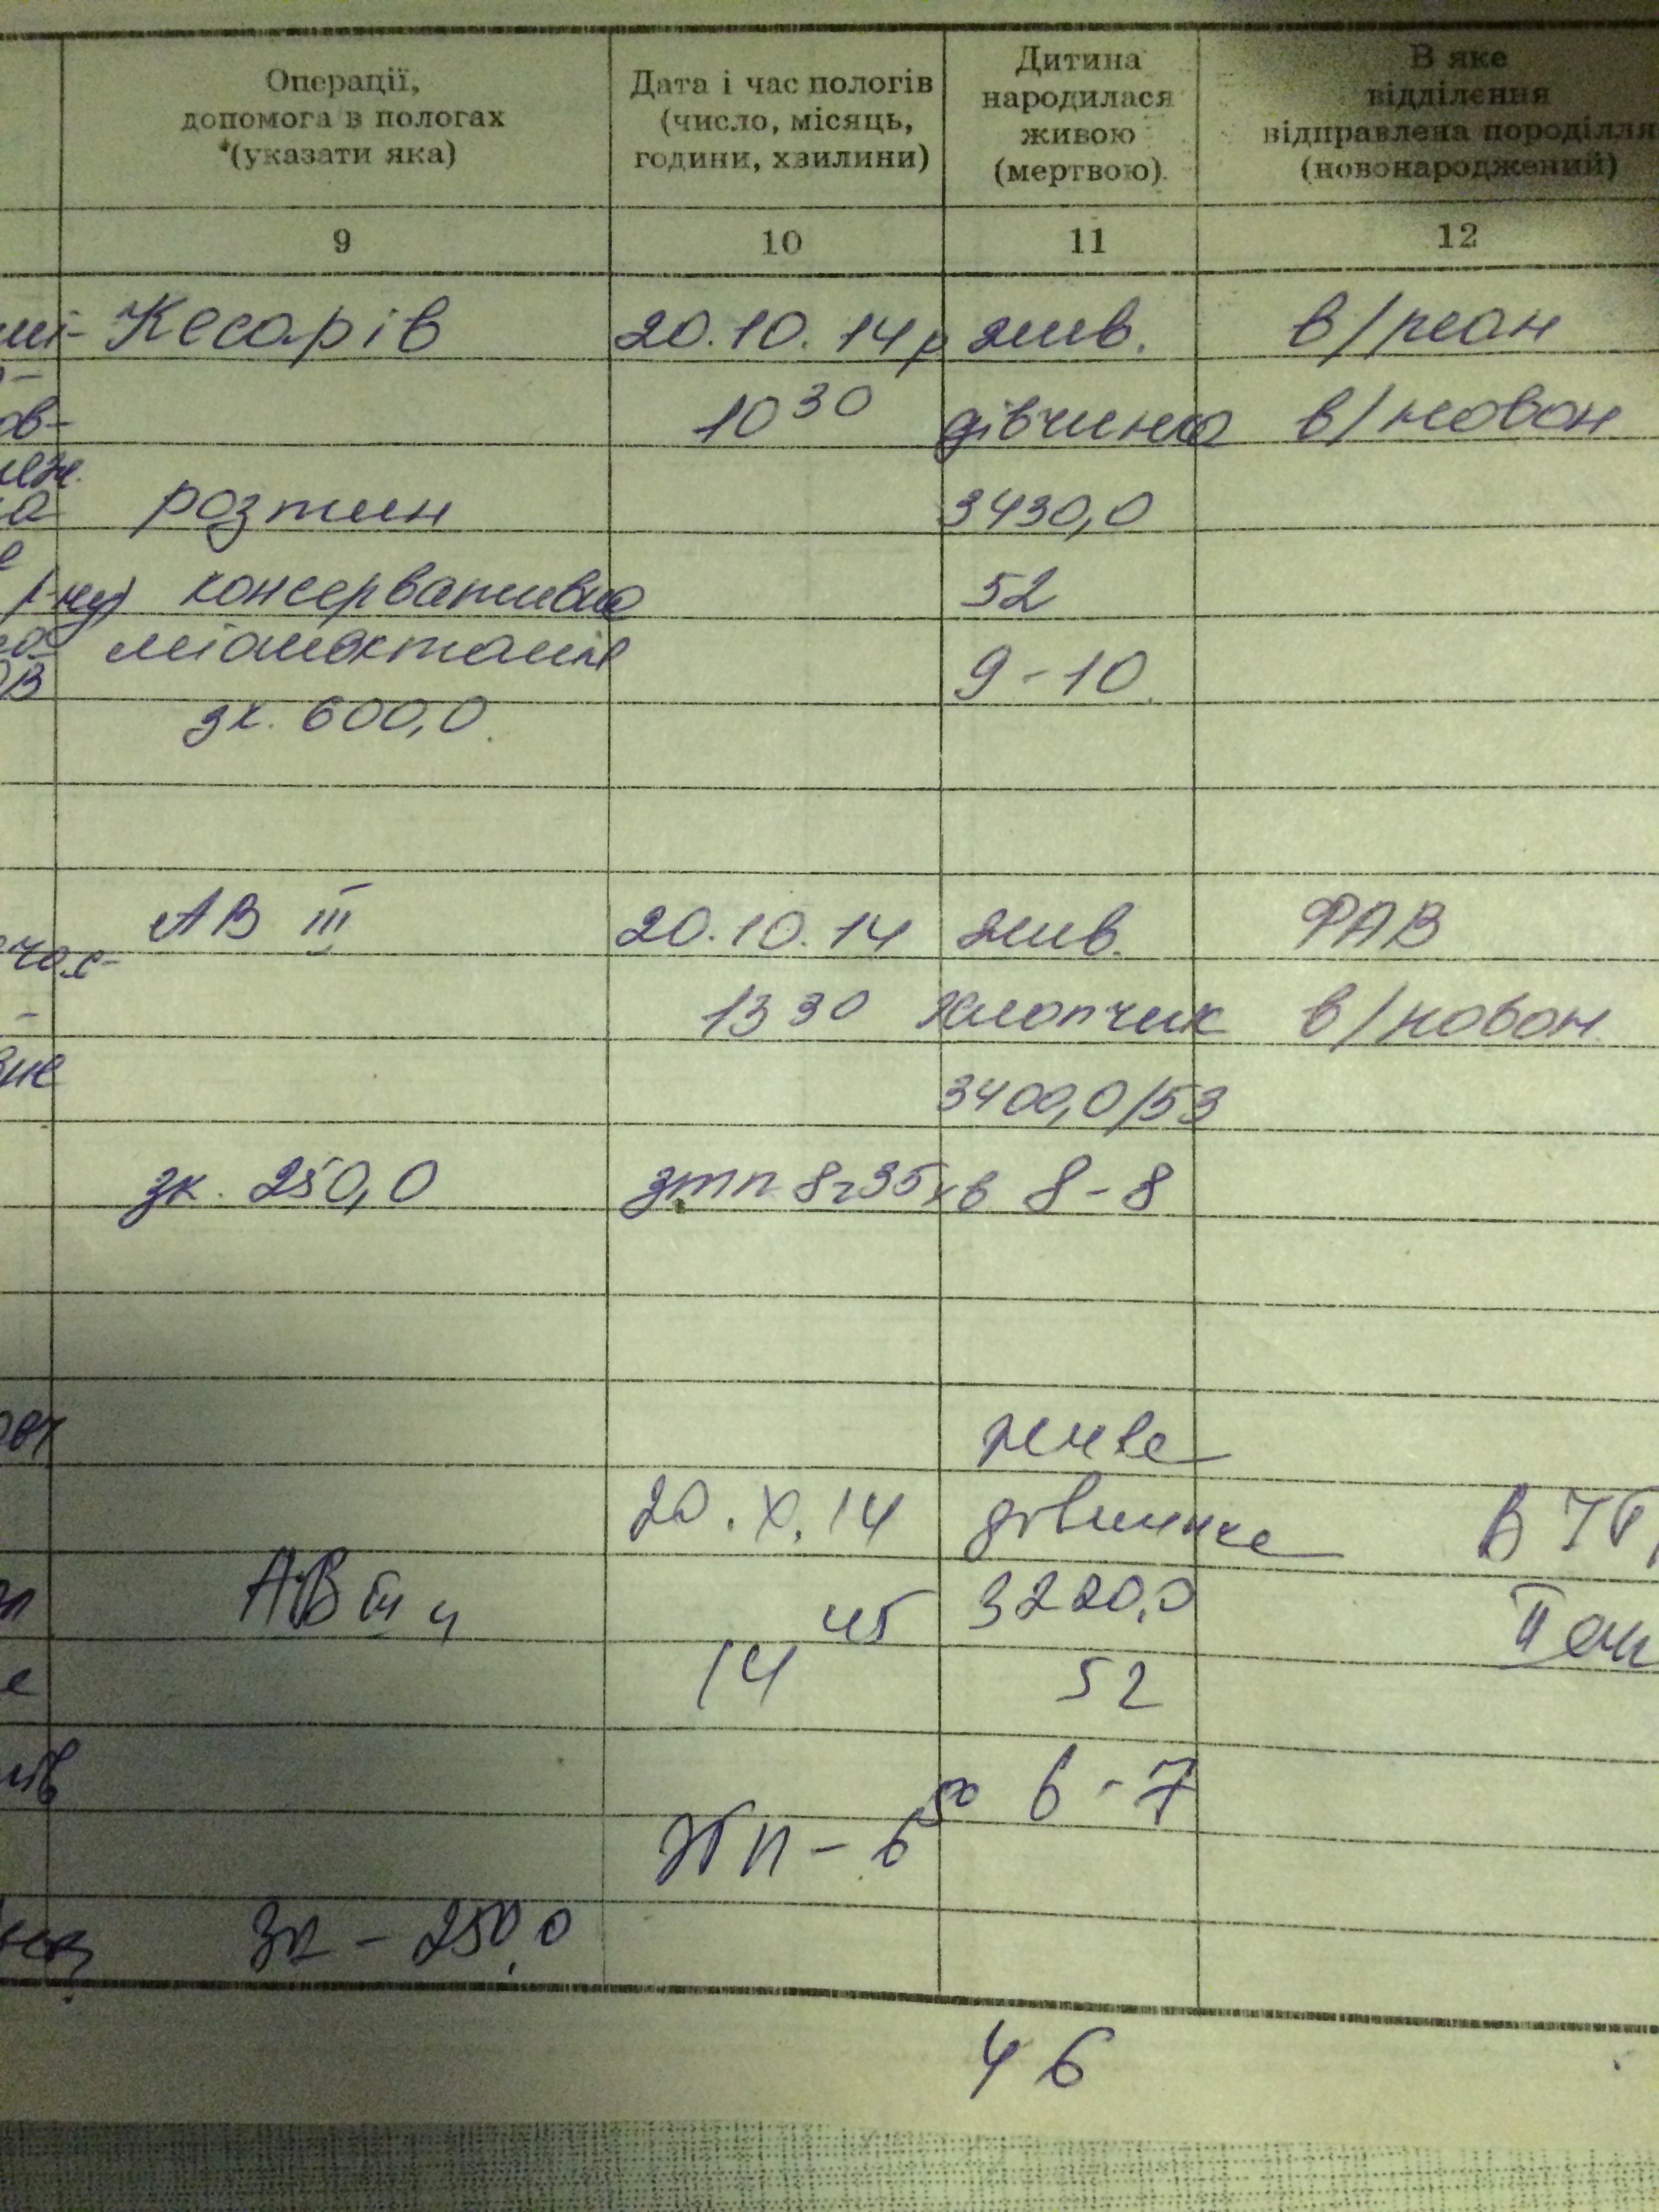 Операції,
допомога в пологах
(указати яка)
Дата і час пологів
(число, місяць,
години, хвилини)
Дитина
народилася
живою
(мертвою)
В яке
відділення
відправлена породілля
(новонароджений)
9 10 11 12
Кесарів 20.10.14р жив. в/реан
10 30 дівчинка в/новон
розтин 3430,0
консервативна 52
міомектомія 9-10
зк. 600,0
АВ III 20.10.14 жив. ФАВ
13 30 хлопчик в/новон
3400,0/53
зк. 250,0 зтп 8г35хв 8-8
живе
20.X.14 дівчинка
АВ 45 3220,0 II
14 52
6-7
- 6 50
Зк - 250,0
46